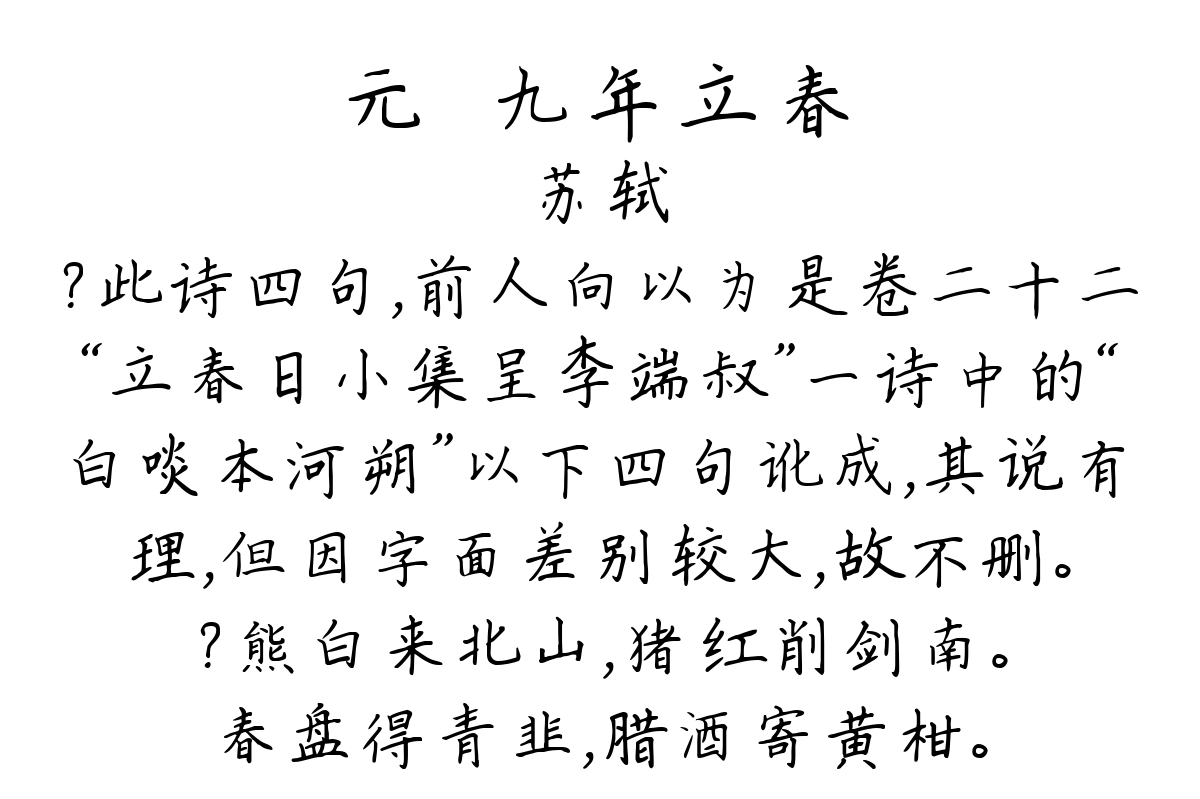 元 九年立春
苏轼
?此诗四句,前人向以为是卷二十二
“立春日小集呈李端叔”一诗中的“
白啖本河朔”以下四句讹成,其说有
理,但因字面差别较大,故不删。
?熊白来北山,猪红削剑南。
春盘得青韭,腊酒寄黄柑。